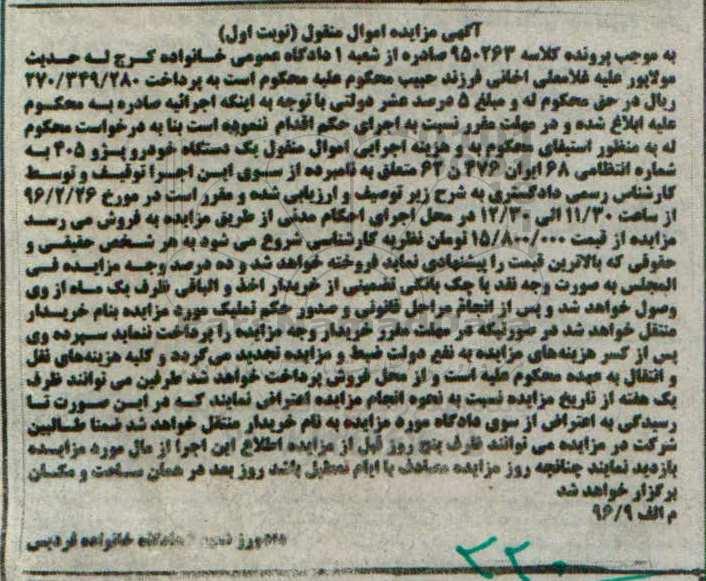 آگهی مزایده اموال منقول (نوبت اول)
به موجب پرونده کلاسه ۹۵۰۲۶۳ صادره از شعبه ۱ دادگاه عمومی خانواده کرج له حدیث
مولاپور علیه غلامعلی اخانی فرزند حبیب محکوم علیه محکوم است به پرداخت ۲۷۰/۳۴۹/۲۸۰
ریال در حق محکوم له و مبلغ ۵ درصد عشر دولتی با توجه به اینکه اجرائیه صادره به محکوم
علیه ابلاغ شده و در مهلت مقرر نسبت به اجرای حکم اقدام ننموده است بنا به درخواست محکوم
له به منظور استیفای محکوم به و هزینه اجرایی اموال منقول یک دستگاه خودرو پژو ۴۰۵ به
شماره انتظامی ۶۸ ایران ۴۷۶ ق ۶۲ متعلق به نامبرده از سوی این اجرا توقیف و توسط
کارشناس رسمی دادگستری به شرح زیر توصیف و ارزیابی شده و مقرر است در مورخ ۹۶/۲/۲۶
از ساعت ۱۱/۳۰ الی ۱۲/۳۰ در محل اجرای احکام مدنی از طریق مزایده به فروش می رسد
مزایده از قیمت ۱۵/۸۰۰/۰۰۰ تومان نظریه کارشناسی شروع می شود به هر شخص حقیقی و
حقوقی که بالاترین قیمت را پیشنهادی نماید فروخته خواهد شد و ده درصد وجه مزایده فی
المجلس به صورت وجه نقد یا چک بانکی تضمینی از خریدار اخذ و الباقی ظرف یک ماه از وی
وصول خواهد شد و پس از انجام مراحل قانونی و صدور حکم تملیک مورد مزایده بنام خریدار
منتقل خواهد شد در صورتیکه در مهلت مقرر خریدار وجه مزایده را پرداخت ننماید سپرده وی
پس از کسر هزینه‌های مزایده به نفع دولت ضبط و مزایده تجدید می‌گردد و کلیه هزینه‌های نقل
و انتقال به عهده محکوم علیه است و از محل فروش پرداخت خواهد شد طرفین می توانند ظرف
یک هفته از تاریخ مزایده نسبت به نحوه انجام مزایده اعتراضی نمایند که در این صورت تا
رسیدگی به اعتراض از سوی دادگاه مورد مزایده به نام خریدار منتقل خواهد شد ضمنا طالبین
شرکت در مزایده می توانند ظرف پنج روز قبل از مزایده اطلاع این اجرا از مال مورد مزایده
بازدید نمایند چنانچه روز مزایده مصادف با ایام تعطیل باشد روز بعد در همان ساعت و مکان
برگزار خواهد شد
م الف ۹۶/۹
خانواده فردیس
۲۲۰